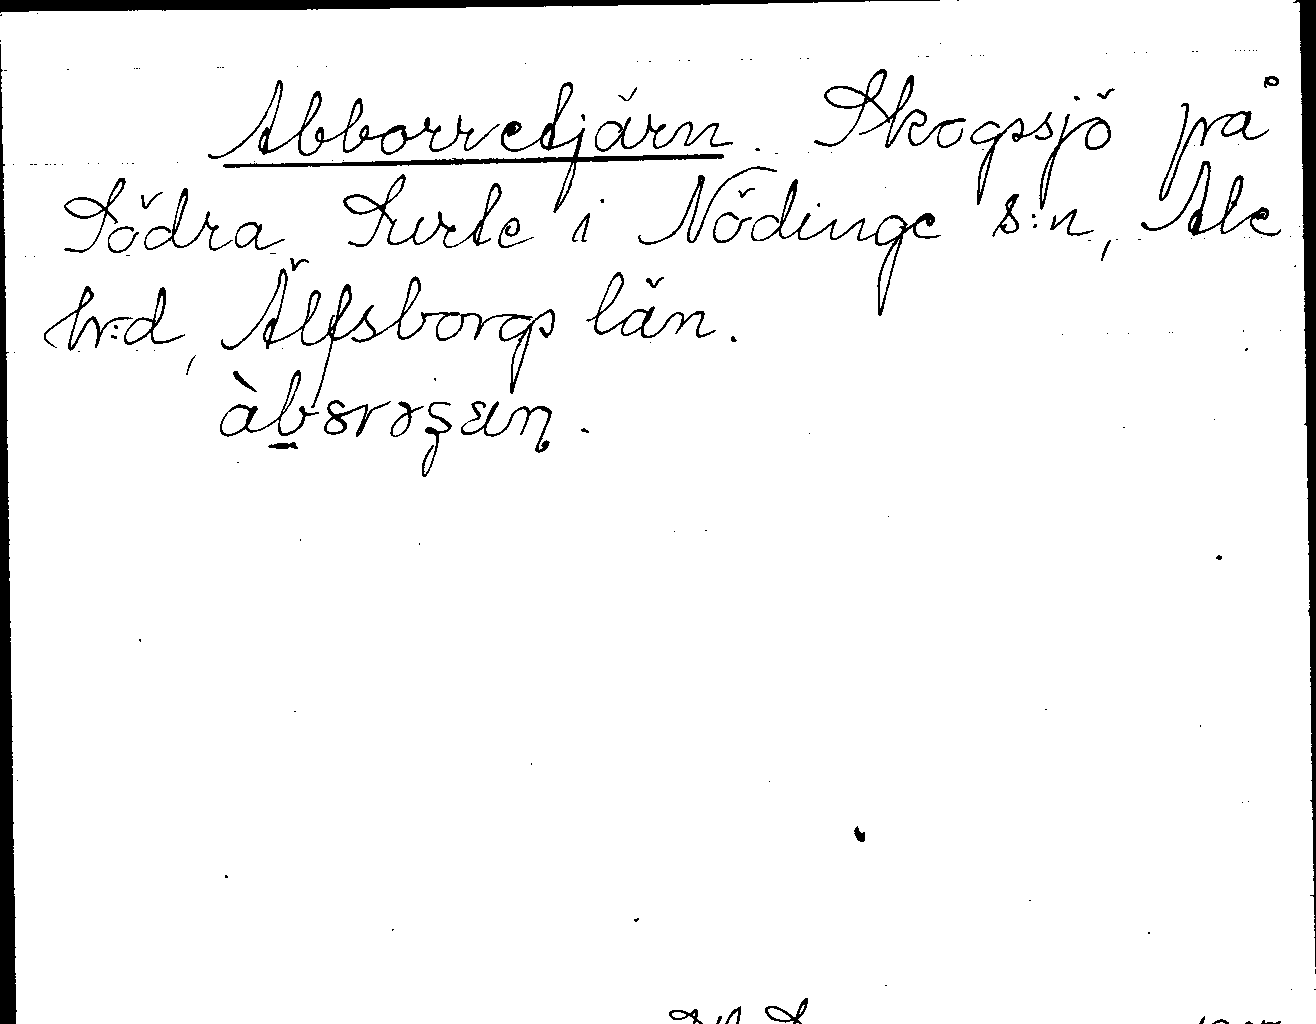 Abborretjärn. Skogssjö på
Södra Surte i Nödinge s:n, Ale
h:d, Älfsborgs län.